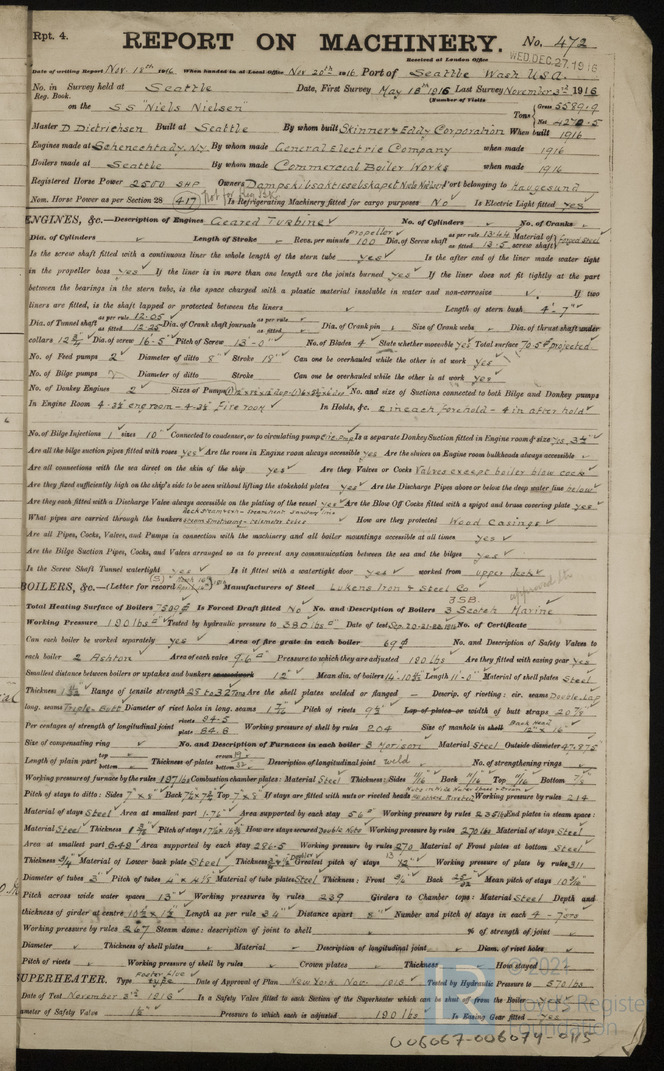 Rpt. 4.
REPORT ON MACHINERY.
No. 472
Received at London Office
WED. DEC. 27. 1916
Date of writing Report Nov. 18th 1916 When handed in at Local Office Nov 20th 1916 Port of Seattle Wash USA.
No. in Survey held at Seattle Date, First Survey May 18th 1916 Last Survey November 3rd 1916
Reg. Book.
(Number of Visits
on the SS "Niels Nielsen"
Tons { Gross 5589.9
Net 4272.5
Master D Dietrichsen Built at Seattle By whom built Skinner & Eddy Corporation When built 1916
Engines made at Schenechtady, N.Y. By whom made General Electric Company when made 1916
Boilers made at Seattle By whom made Commercial Boiler Works when made 1916
Registered Horse Power 2500 SHP Owners Dampskibsaktieselskapet Niels Nielsen Port belonging to Haugesund
Nom. Horse Power as per Section 28 (417) Is Refrigerating Machinery fitted for cargo purposes No Is Electric Light fitted yes
ENGINES, &c.—Description of Engines Geared Turbine No. of Cylinders No. of Cranks
Dia. of Cylinders Length of Stroke Revs. per minute propeller 100 Dia. of Screw shaft as per rule 13.44 as fitted 13.5 Material of screw shaft Forged Steel
Is the screw shaft fitted with a continuous liner the whole length of the stern tube yes Is the after end of the liner made water tight
in the propeller boss yes If the liner is in more than one length are the joints burned yes If the liner does not fit tightly at the part
between the bearings in the stern tube, is the space charged with a plastic material insoluble in water and non-corrosive If two
liners are fitted, is the shaft lapped or protected between the liners Length of stern bush 4'-7"
Dia. of Tunnel shaft as per rule 12.05 as fitted 12.25 Dia. of Crank shaft journals as per rule as fitted Dia. of Crank pin Size of Crank webs Dia. of thrust shaft under
collars 12 3/4" Dia. of screw 16-5" Pitch of Screw 13'-0" No. of Blades 4 State whether moveable yes Total surface 70.5 projected
No. of Feed pumps 2 Diameter of ditto 8" Stroke 18" Can one be overhauled while the other is at work yes
No. of Bilge pumps 2 Diameter of ditto Stroke Can one be overhauled while the other is at work yes
No. of Donkey Engines 2 Sizes of Pumps No. and size of Suctions connected to both Bilge and Donkey pumps
In Engine Room 4-3½ eng room - 4-3½ Fire room In Holds, &c. 2 in each forehold - 4 in after hold
No. of Bilge Injections 1 sizes 10" Connected to condenser, or to circulating pump Circ Pump Is a separate Donkey Suction fitted in Engine room & size yes, 3½
Are all the bilge suction pipes fitted with roses yes Are the roses in Engine room always accessible yes Are the sluices on Engine room bulkheads always accessible
Are all connections with the sea direct on the skin of the ship yes Are they Valves or Cocks Valves except boiler blow cock
Are they fixed sufficiently high on the ship's side to be seen without lifting the stokehold plates yes Are the Discharge Pipes above or below the deep water line below
Are they each fitted with a Discharge Valve always accessible on the plating of the vessel yes Are the Blow Off Cocks fitted with a spigot and brass covering plate yes
What pipes are carried through the bunkers How are they protected Wood Casings
Are all Pipes, Cocks, Valves, and Pumps in connection with the machinery and all boiler mountings accessible at all times yes
Are the Bilge Suction Pipes, Cocks, and Valves arranged so as to prevent any communication between the sea and the bilges yes
Is the Screw Shaft Tunnel watertight yes Is it fitted with a watertight door yes worked from upper deck
BOILERS, &c.—(Letter for record (S)) Manufacturers of Steel Lukens Iron & Steel Co
Total Heating Surface of Boilers 7509 Is Forced Draft fitted No No. and Description of Boilers 3 SB. 3 Scotch Marine
Working Pressure 190 lbs Tested by hydraulic pressure to 380 lbs Date of test No. of Certificate
Can each boiler be worked separately yes Area of fire grate in each boiler 69 No. and Description of Safety Valves to
each boiler 2 Ashton Area of each valve 9.6 Pressure to which they are adjusted 190 lbs Are they fitted with easing gear yes
Smallest distance between boilers or uptakes and bunkers 12" Mean dia. of boilers Length 11'-0" Material of shell plates Steel
Thickness Range of tensile strength 28 to 32 Tons Are the shell plates welded or flanged Descrip. of riveting: cir. seams Double Lap
long. seams Triple-Butt Diameter of rivet holes in long. seams Pitch of rivets 9½ Lap of plates or width of butt straps 20 7/8"
Per centages of strength of longitudinal joint rivets 84.5 plate 84.8 Working pressure of shell by rules 204 Size of manhole in shell 12" x 16"
Size of compensating ring No. and Description of Furnaces in each boiler 3 Morison Material Steel Outside diameter 47.875
Length of plain part top bottom Thickness of plates crown bottom Description of longitudinal joint weld No. of strengthening rings
Working pressure of furnace by the rules 197 lbs Combustion chamber plates: Material Steel Thickness: Sides 11/16" Back 11/16 Top 11/16 Bottom 7/8"
Pitch of stays to ditto: Sides 7" x 8" Back 7½ x 7½ Top 7" x 8" If stays are fitted with nuts or riveted heads Working pressure by rules 214
Material of stays Steel Area at smallest part 1.76" Area supported by each stay 56 Working pressure by rules 235 lbs End plates in steam space:
Material Steel Thickness Pitch of stays How are stays secured Double Nuts Working pressure by rules 270 lbs Material of stays Steel
Area at smallest part 6.49 Area supported by each stay 286.5 Working pressure by rules 270 Material of Front plates at bottom Steel
Thickness 3/4" Material of Lower back plate Steel Thickness Greatest pitch of stays Working pressure of plate by rules 311
Diameter of tubes 3" Pitch of tubes Material of tube plates Steel Thickness: Front Back Mean pitch of stays
Pitch across wide water spaces 13" Working pressures by rules 239 Girders to Chamber tops: Material Steel Depth and
thickness of girder at centre 10½ x 1½ Length as per rule 34" Distance apart 8" Number and pitch of stays in each
Working pressure by rules 267 Steam dome: description of joint to shell % of strength of joint
Diameter Thickness of shell plates Material Description of longitudinal joint Diam. of rivet holes
Pitch of rivets Working pressure of shell by rules Crown plates Thickness How stayed
SUPERHEATER. Type Foster Live type Date of Approval of Plan New York Nov. 1916 Tested by Hydraulic Pressure to 570 lbs
Date of Test November 3rd 1916 Is a Safety Valve fitted to each Section of the Superheater which can be shut off from the Boiler yes
Diameter of Safety Valve 1½" Pressure to which each is adjusted 190 lbs Is Easing Gear fitted yes
© 2021
Lloyd's Register
Foundation
006067-006074-0115